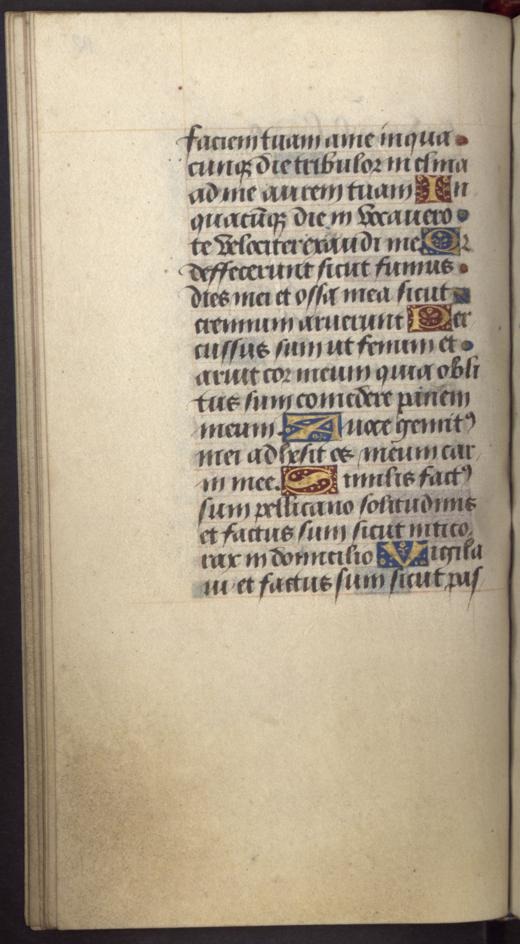 faciem tuam a me in qua
cunqꝫ die tribulor inclina
ad me aurem tuam In
quacūqꝫ die in vocauero
te velociter exaudi me Qꝛ
deffecerunt sicut fumus
dies mei et ossa mea sicut
cremium aruerunt Per
cussus sum ut fenum et
aruit cor meum quia obli
tus sum comedere panem
meum A uoce gemitꝰ
mei adhesit os meum car
ni mee. Similis factꝰ
sum pellicano solitudinis
et factus sum sicut nitico
rax in domicilio Vigila
ui et factus sum sicut pas